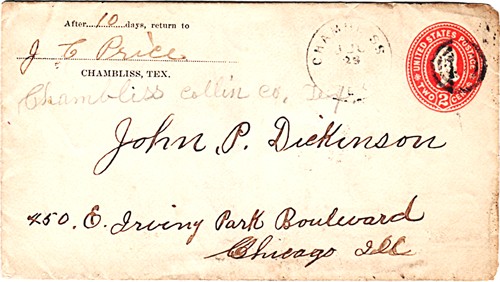 After 10 days, return to
J C Price
CHAMBLISS, TEX.
Chambliss Collin Co, Tex
CHAMBLISS
UNITED STATES POSTAGE
TWO 2 CENTS
John, P. Dickinson
450. E. Irving Park Boulevard
Chicago Ill